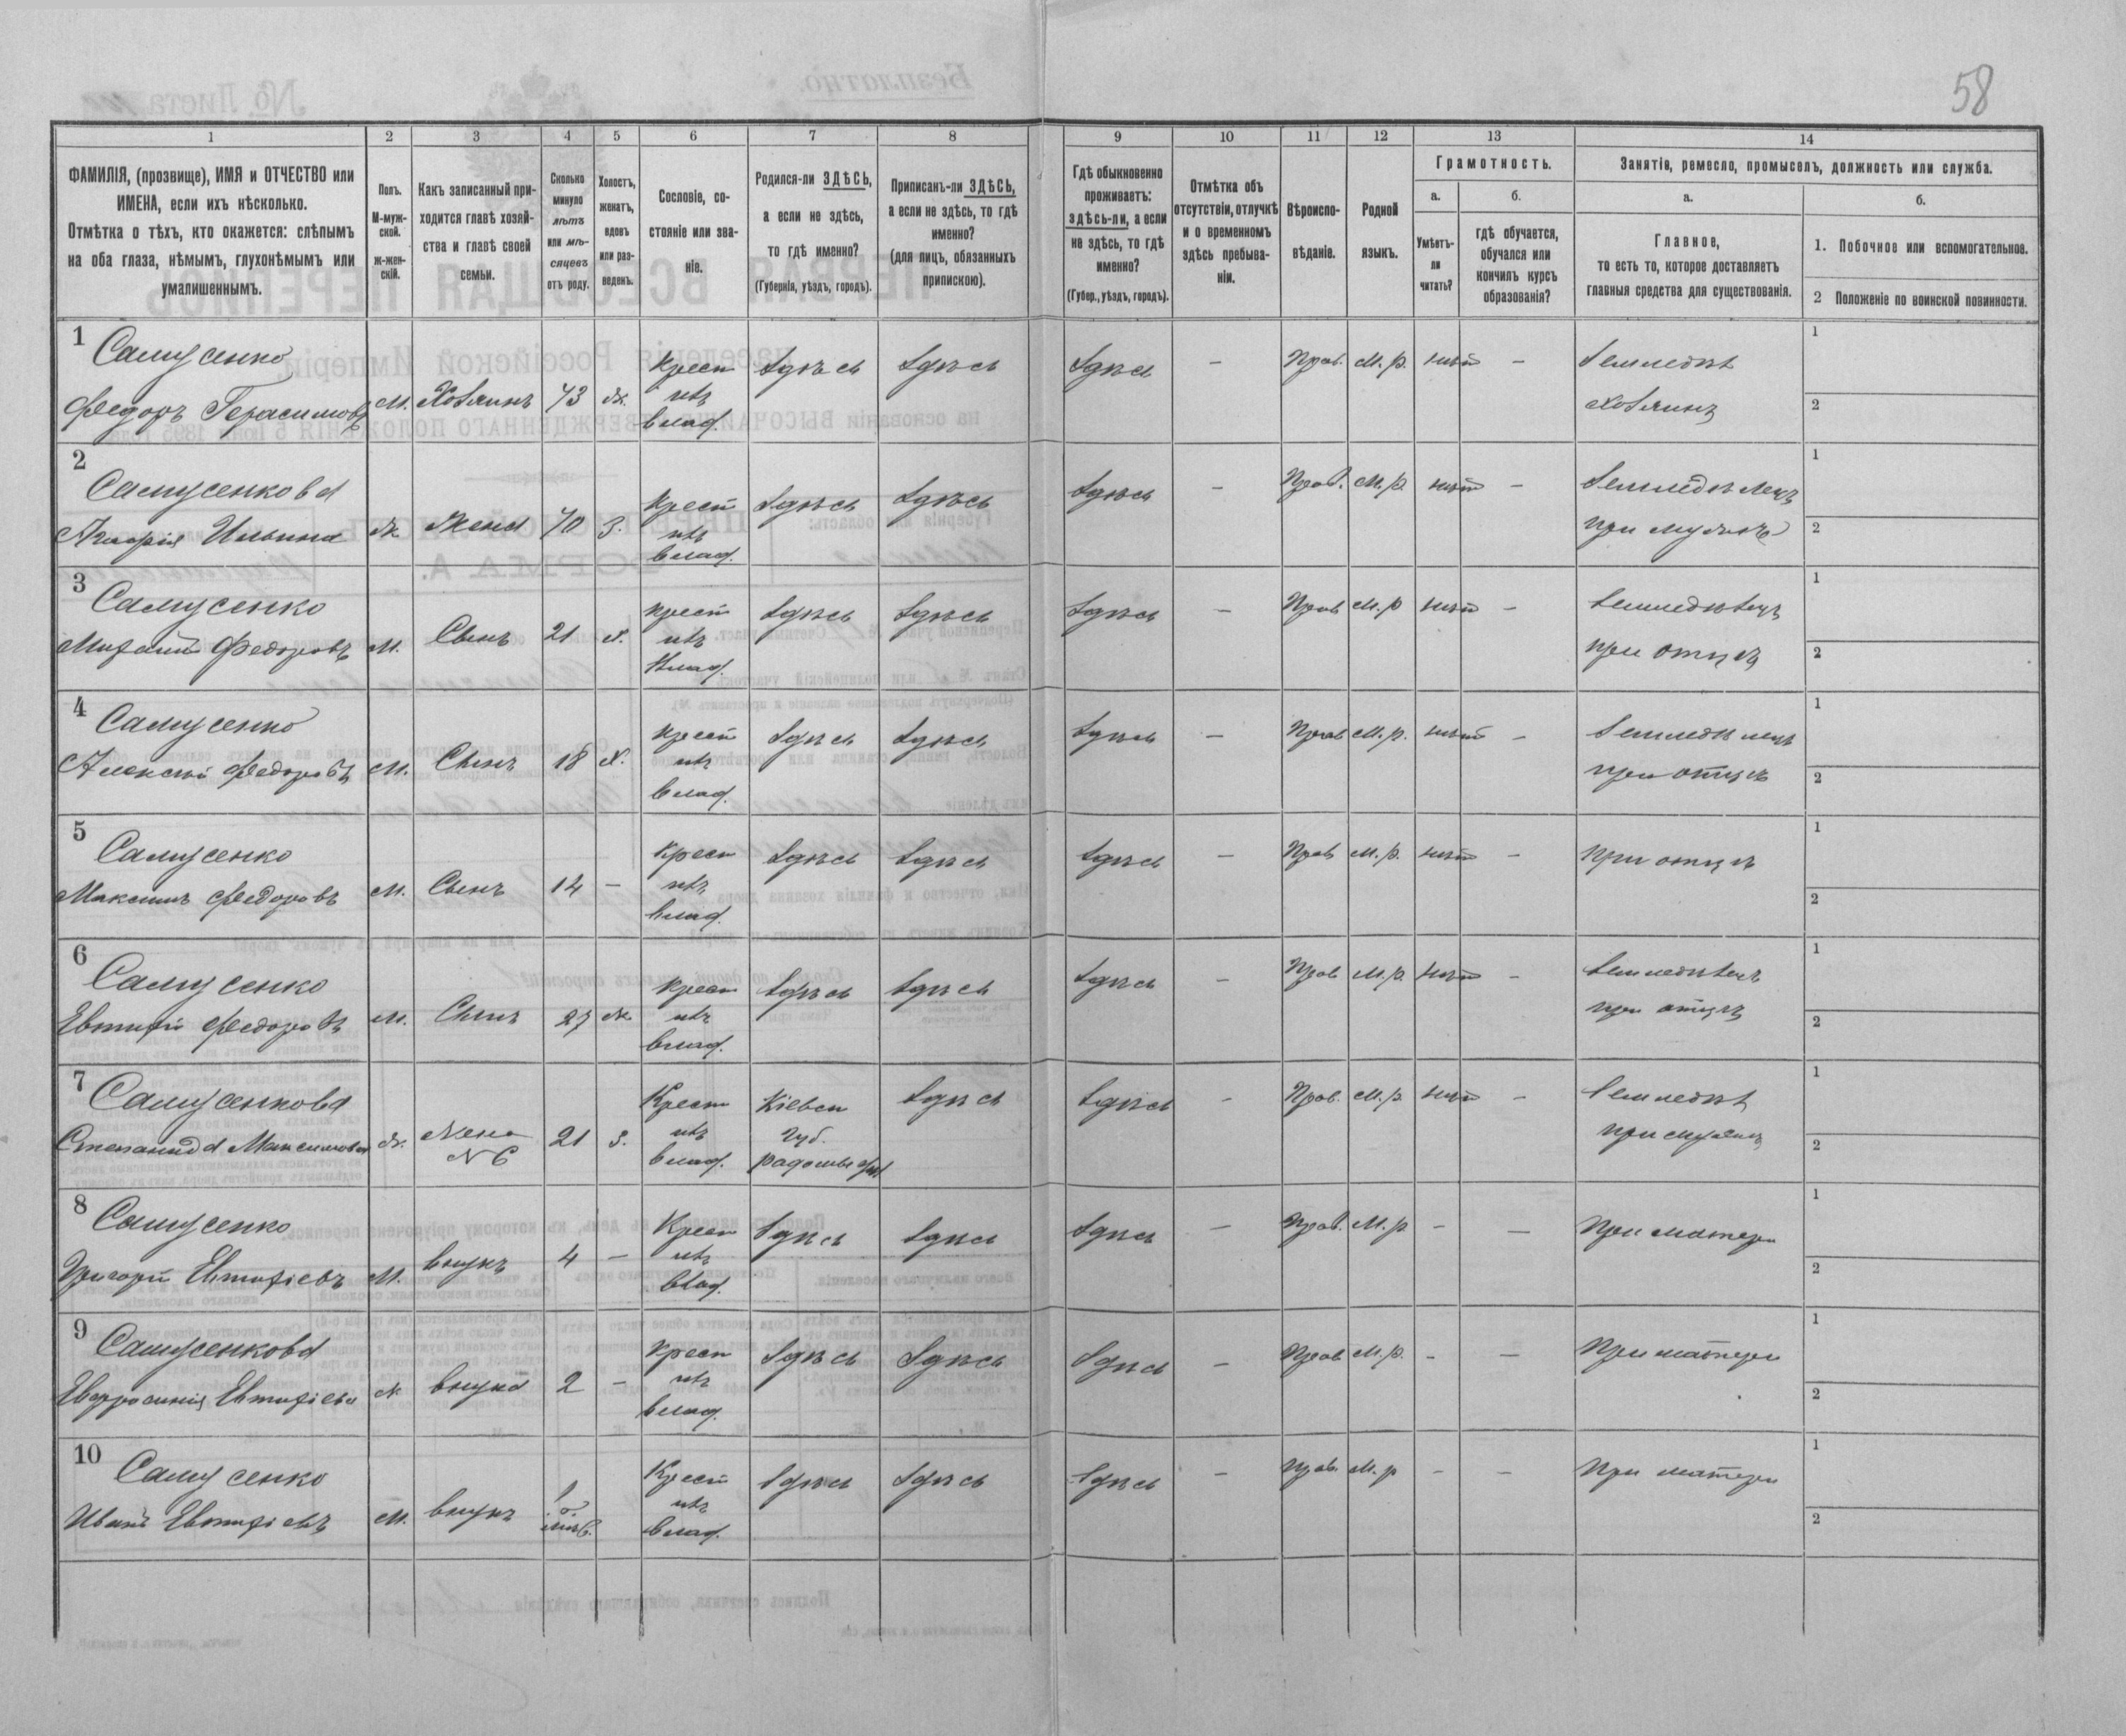 58
1 2 3 4 5 6 7 8 9 10 11 12 13 14
ФАМИЛІЯ, (прозвище), ИМЯ и ОТЧЕСТВО или
ИМЕНА, если ихъ нѣсколько.
Отмѣтка о тѣхъ, кто окажется: слѣпымъ
на оба глаза, нѣмымъ, глухонѣмымъ или
умалишеннымъ.
Полъ.
М-муж-
ской.
ж-жен-
скій.
Какъ записанный при-
ходится главѣ хозяй-
ства и главѣ своей
семьи.
Сколько
минуло
лѣтъ
или мѣ-
сяцевъ
отъ роду.
Холостъ,
женатъ,
вдовъ
или раз-
веденъ.
Сословіе, со-
стояніе или зва-
ніе.
Родился-ли ЗДѢСЬ,
а если не здѣсь,
то гдѣ именно?
(Губернія, уѣздъ, городъ).
Приписанъ-ли ЗДѢСЬ,
а если не здѣсь, то гдѣ
именно?
(для лицъ, обязанныхъ
припискою).
Гдѣ обыкновенно
проживаетъ:
здѣсь-ли, а если
не здѣсь, то гдѣ
именно?
(Губер., уѣздъ, городъ).
Отмѣтка объ
отсутствіи, отлучкѣ
и о временномъ
здѣсь пребыва-
ніи.
Вѣроиспо-
вѣданіе.
Родной
языкъ.
Грамотность.
а.
Умѣетъ-
ли
читать?
б.
гдѣ обучается,
обучался или
кончилъ курсъ
образованія?
Занятіе, ремесло, промыселъ, должность или служба.
а.
Главное,
то есть то, которое доставляетъ
главныя средства для существованія.
б.
1. Побочное или вспомогательное.
2 Положеніе по воинской повинности.
1 Самусенко Крест Здѣсь Здѣсь Здѣсь — Прав. М.р. нѣт — 1
Федоръ Герасимовъ М. Хозяинъ ж. изъ Хозяинъ 2
влад.
2 Самусенкова Крест Здѣсь Здѣсь Здѣсь — Прав. М.р. нѣт — Земледѣлецъ 1
Ильина ж Жена З. изъ при мужѣ 2
влад.
3 Самусенко Крест Здѣсь Здѣсь Здѣсь — Прав М.р нѣт — 1
Михаилъ Федоровъ М. Сынъ 21 х. изъ при отцѣ 2
влад.
4 Самусенко Крест Здѣсь Здѣсь Здѣсь — Прав М.р. нѣт — Земледѣлецъ 1
Алексѣй Федоровъ М. Сынъ 18 х. изъ при отцѣ 2
влад.
5 Самусенко Крест Здѣсь Здѣсь Здѣсь — Прав М.р. нѣт — при отцѣ 1
Максимъ Федоровъ М. Сынъ 14 — изъ 2
влад.
6 Самусенко Крест Здѣсь Здѣсь Здѣсь — Прав М.р. нѣт — 1
Евтихій Федоровъ М. Сынъ 27 ж изъ при отцѣ 2
влад.
7 Самусенкова Крест Кіевск Здѣсь Здѣсь — Прав. М.р. нѣт — 1
Степанида Максимова ж. Жена 21 З. изъ Губ. при мужѣ 2
N 6 влад.
8 Самусенко Крест Здѣсь Здѣсь Здѣсь — Прав. М.р. — — При матери 1
Григорій Евтихіевъ М. внукъ 4 — изъ 2
влад.
9 Самусенкова Крест Здѣсь Здѣсь Здѣсь — Прав М.р. — — При матери 1
Евтихіева ж внука 2 — изъ 2
влад.
10 Самусенко Крест Здѣсь Здѣсь Здѣсь — Прав. М.р — — При матери 1
Иванъ Евтихіевъ М. внукъ изъ 2
влад.